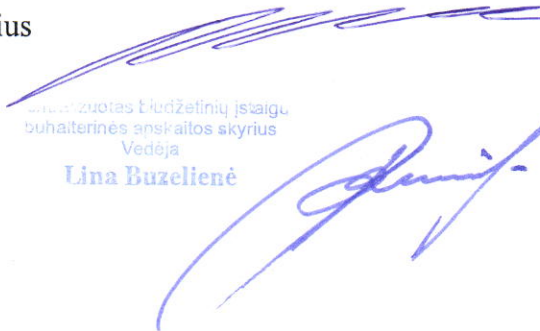 ius
biudžetinių įstaigų
buhalterinės apskaitos skyrius
Vedėja
Lina Buzelienė